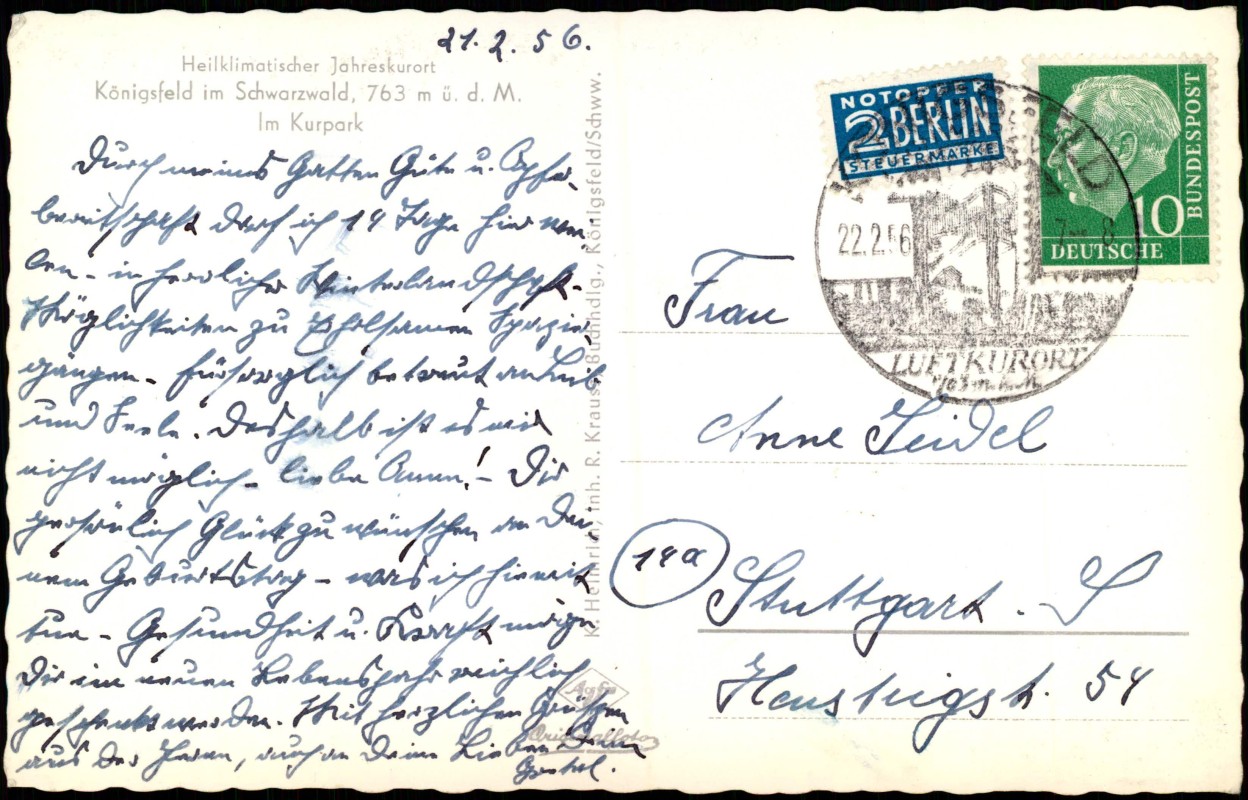 21. 2. 56.
Heilklimatischer Jahreskurort
Königsfeld im Schwarzwald, 763 m ü. d. M.
Im Kurpark
Durch meines Gatten Güte u. Opfer-
bereitschaft darf ich 14 Tage hier wei-
len - in herrlicher Winterlandschaft.
Möglichkeiten zu erholsamen Spazier-
gängen - fürsorglich betreut an Leib
und Seele. Deshalb ist es mir
nicht möglich - liebe Anne! - Dir
persönlich Glück zu wünschen an Dei-
nem Geburtstag - was ich hiermit
tue - Gesundheit u. Kraft möge
Dir im neuen Lebensjahr reichlich
geschenkt werden. Mit herzlichen Grüßen
aus der Ferne, auch an Deine Lieben Deine
Gretel.
K. Heinrich, Inh. R. Kraus, Buchhdlg., Königsfeld/Schww.
Agfa
NOTOPFER
2 BERLIN
STEUERMARKE
DEUTSCHE
BUNDESPOST
10
22.2.56
LUFTKURORT
763 m ü. M.
Frau
Anne Seidel
14a
Stuttgart - S
54